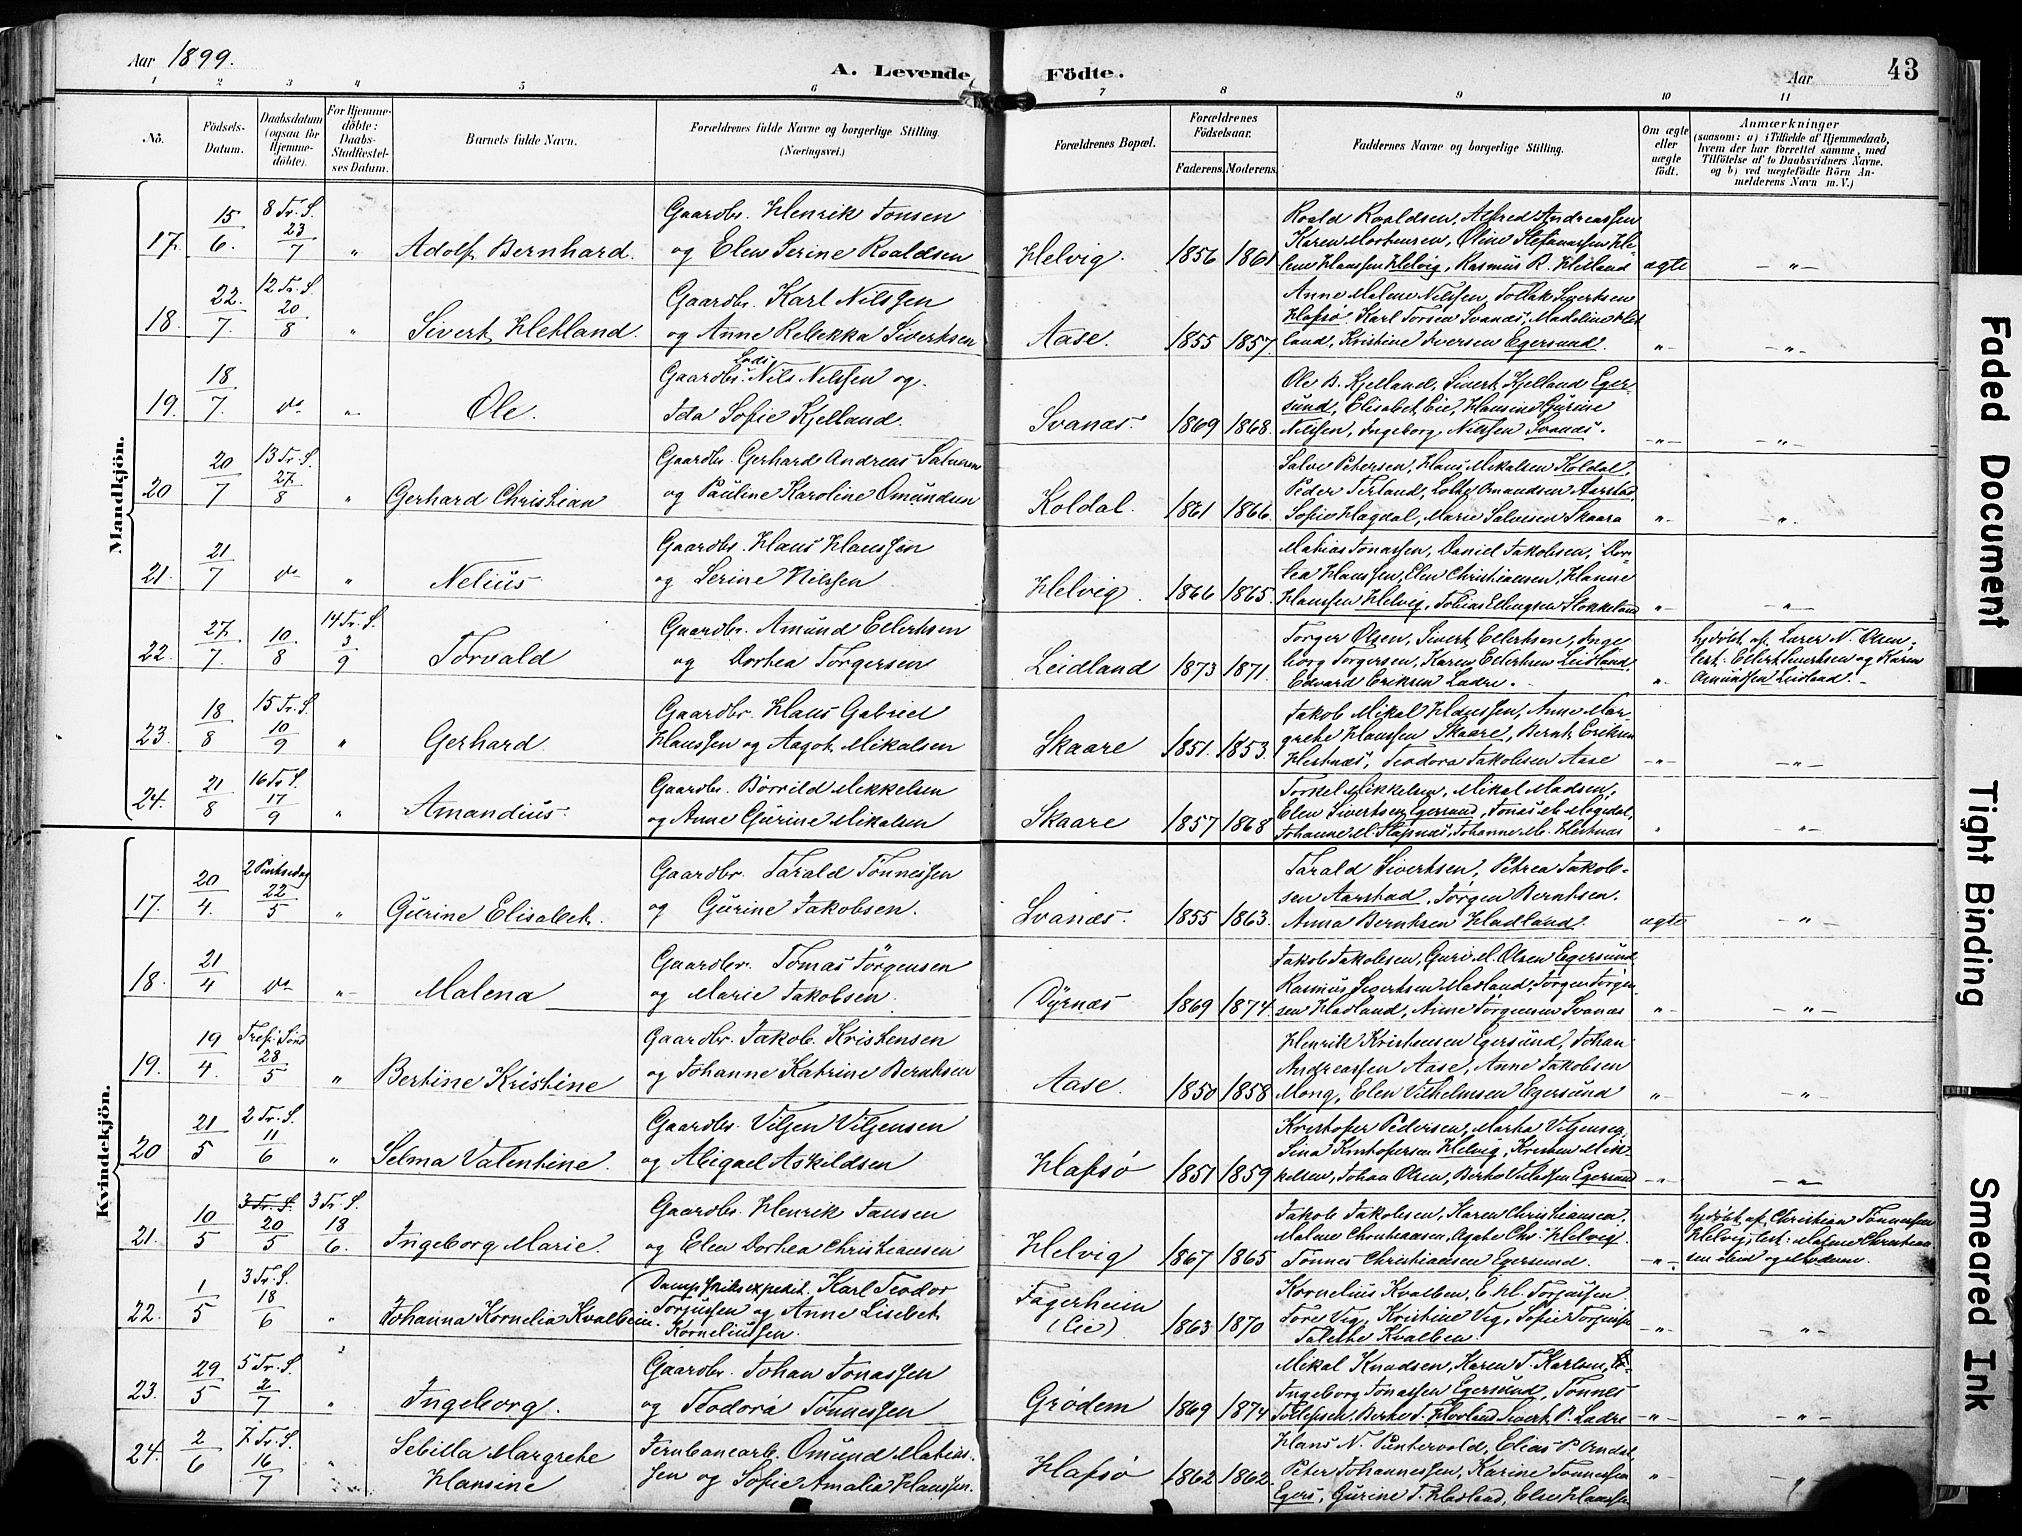 Aar 1899.
A. Levende Födte.
Aar
43
1 2 3 4 5 6 7 8 9 10 11
No.
Födsels-
Datum.
Daabsdatum
(ogsaa for
Hjemme-
döbte).
For Hjemme-
döbte:
Daabs-
Stadfæstel-
ses Datum.
Barnets fulde Navn.
Forældrenes fulde Navne og borgerlige Stilling.
(Næringsvei.)
Forældrenes Bopæl.
Forældrenes
Födselsaar.
Faderens. Moderens.
Faddernes Navne og borgerlige Stilling.
Om ægte
eller
uægte
födt.
Anmærkninger
(saasom: a) i Tilfælde af Hjemmedaab,
hvem der har forrettet samme, med
Tilföielse af to Daabsvidners Navne.
og b) ved uægtefödte Börn An-
melderens Navn m. V.)
Mandkjön.
17. 15/6. 8 Tr. S. 23/7 " Adolf Bernhard.
Gaardbr. Henrik Tonsen
og Elen Serine Roaldsen
Helvig. 1856 1861
Roald Roaldsen, Alfred Andreassen
Karen Mortensen, Oline Stefanassen He-
lene Hanssen Helvig, Rasmus R. Hetland
ægte - " -
18. 22./7. 12 Tr. S. 20/8 " Sivert Hetland.
Gaardbr. Karl Nilssen
og Anne Rebekka Sivertsen
Aase. 1855 1857.
Anne Malene Nilssen, Tollak Sivertsen
Hafsø, Karl Torsen Svanæs, Madeline Het-
land, Kristine Iversen Egersund.
" - " -
19. 18/7. do " Ole.
Gaardbr. Lods Nils Nilssen og
Ida Sofie Kjelland.
Svanæs. 1869 1868.
Ole B. Kjelland, Sivert Kjelland Eger-
sund, Elisabet Eie, Hansine Gurine
Nilssen, Ingeborg Nilssen Svanæs.
" - " -
20 20/7 13 Tr. S. 27/8 " Gerhard Christian
Gaardbr. Gerhard Andreas Salvesen
og Pauline Karoline Omundsen
Koldal. 1861 1866.
Salve Petersen, Hans Mikalsen Koldal,
Peder Terland, Lotte Omundsen Aarstad,
Sofie Hagdal, Marie Salvesen Skaara
" "
21. 21/7 do " Nelius
Gaardbr. Hans Hanssen
og Serine Nilssen
Helvig. 1866 1865.
Matias Jonassen, Daniel Jakobsen, Dor-
tea Hanssen, Elen Christiansen, Hanne
Hanssen Helvig, Tobias Ellingsen Stokkeland
" "
22. 27/7. 10/8 14 Tr. S. 3/9 Torvald
Gaardbr. Amund Eilertsen
og Dorthea Torgersen
Leidland 1873 1871.
Torger Olsen, Sivert Eilertsen, Inge-
borg Torgersen, Karen Eilertsen Leidland,
Edvard Eriksen Ladre.
"
hjdøbt af Lærer N. Olsen.
test: Eilert Sivertsen og Karen
Omundsen Leidland.
23. 18/8 15 Tr. S. 10/9 " Gerhard.
Gaardbr. Hans Gabriel
Hanssen og Aagot Mikalsen
Skaare 1851. 1853.
Jakob Mikal Hanssen, Anne Mar-
grethe Hanssen Skaare, Bernt Eriksen
Hestnæs, Teodora Jakobsen Aase
" - " -
24. 21/8 16 Tr. S. 17/9 " Amandius.
Gaardbr. Børrild Mikkelsen
og Anne Gurine Mikalsen
Skaare 1857 1868
Torkel Mikkelsen, Mikal Madsen,
Elen Sivertsen Egersund, Jonas M. Møgedal,
Johanne M. Hafsnæs, Johanne M. Hestnæs
" - " -
Kvindekjön.
17. 20/4. 2 Pintsedag 22/5 " Gurine Elisabet.
Gaardbr. Tarald Tönnessen
og Gurine Jakobsen.
Svanæs. 1855 1863.
Tarald Sivertsen, Petrea Jakob-
sen Aarstad, Jörgen Berntsen.
Anna Berntsen Hadland.
ægte - " -
18. 21/4 do " Malena
Gaardbr. Tomas Jörgensen
og Marie Jakobsen.
Dyrnæs 1869 1874
Jakob Jakobsen, Guri M. Olsen Egersund,
Rasmus Sivertsen Hadland, Jörgen Jörgen-
sen Hadland, Anne Jörgensen Svanæs
" - " -
19. 19/4. Tref. Sönd. 28/5 " Bertine Kristine
Gaardbr. Jakob Kristensen
og Johanne Katrine Berntsen
Aase. 1850 1858
Henrik Kristensen Egersund, Johan
Andreassen Aase, Anne Jakobsen
Mong, Elen Vilhelmsen Egersund
" "
20 21/5 2 Tr. S. 11/6 " Selma Valentine.
Gaardbr. Viljen Viljensen
og Abigael Askildsen
Hafsø 1851 1859
Kristofer Pedersen, Marta Viljensen,
Sina Kristofersen Helvig, Kristen Mik-
kelsen, Johan Olsen, Berte Tollefsen Egersund
" - " -
21. 10/5 3 Tr. S. 20/5 3 Tr. S. 18/6. Ingeborg Marie.
Gaardbr. Henrik Jansen
og Elen Dorthea Christiansen
Helvig 1867 1865
Jakob Jakobsen, Karen Christiansen,
Malene Christiansen, Agate Chr. Helvig.
Tönnes Christiansen Egersund.
"
hjdøbt af Christian Tönnessen
Helvig, test: Malene Christian-
sen ibid og Moderen.
22. 1/5 3 Tr. S. 18/6 " Johanna Kornelia Kvalbein.
Dampskibsexpedit. Karl Teodor
Torjussen og Anne Lisebet
Korneliussen.
Fagerheim
(Eie) 1863 1870
Kornelius Kvalben, E. H. Torjussen.
Tore Vig, Kristine Vig, Sofie Torjussen
Talette Kvalben.
" "
23. 29/5 5 Tr. S. 2/7 " Ingeborg.
Gaardbr. Johan Jonassen
og Teodora Tönnessen
Grödem 1869 1874
Mikal Knudsen, Karen T. Karlsen,
Ingeborg Jonassen Egersund, Tönnes
Tollefsen, Berte T. Hovland Sivert P. Ladre
" "
24. 2/6 7. Tr. S. 16/7 " Sebilla Margrethe
Hansine
Jernbanearb. Omund Matias-
sen og Sofie Amalia Hanssen.
Hafsø 1862 1862.
Hans N. Puntervold, Elias P. Ondal,
Peter Johannessen, Karine Tönnessen
Egers, Gurine T. Hadland, Else Hanssen
" "
Faded Document
Tight Binding
Smeared Ink